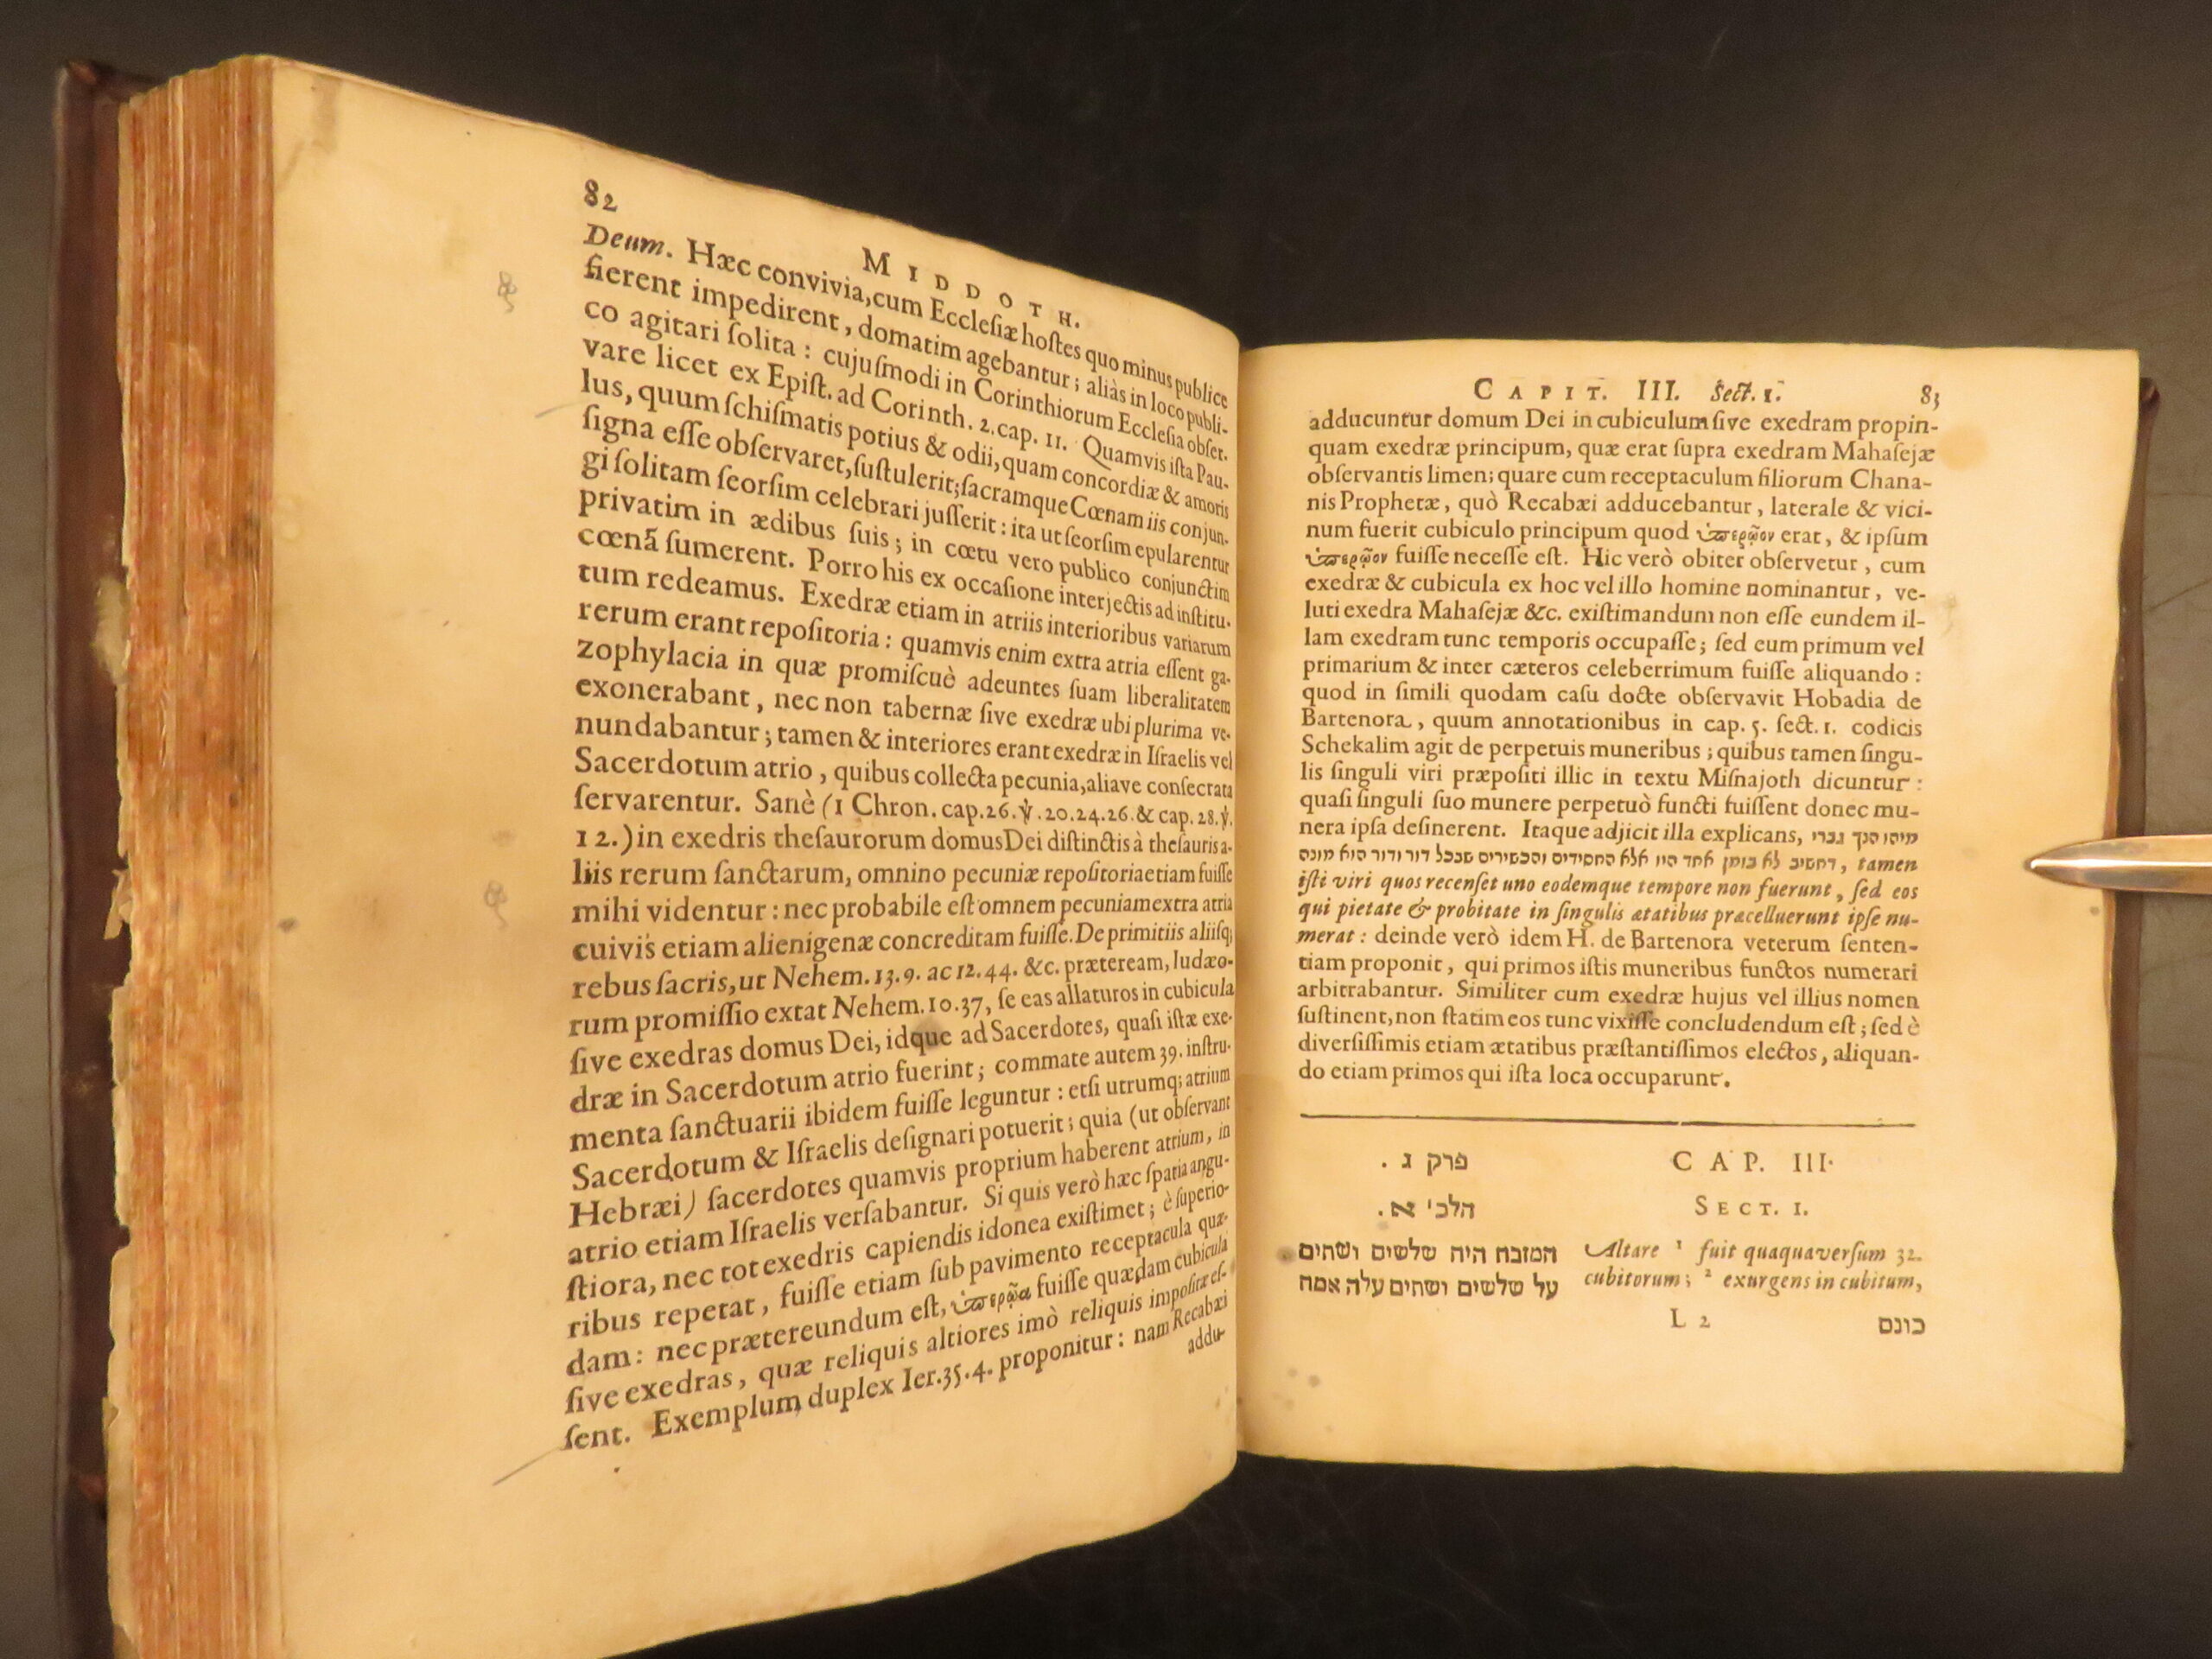 82
MIDDOTH.
Deum. Hæc convivia, cum Eccleſiæ hoſtes quo minus publice
fierent impedirent, domatim agebantur; aliàs in loco publi-
co agitari ſolita: cujuſmodi in Corinthiorum Eccleſia obſer-
vare licet ex Epiſt. ad Corinth. 2. cap. 11. Quamvis iſta Pau-
lus, quum ſchiſmatis potius & odii, quam concordiæ & amoris
ſigna eſſe obſervaret, ſuſtulerit; ſacramque Cœnam iis conjun-
gi ſolitam ſeorſim celebrari juſſerit: ita ut ſeorſim epularentur
privatim in ædibus ſuis; in cœtu vero publico conjunctim
cœnã ſumerent. Porro his ex occaſione interjectis ad inſtitu-
tum redeamus. Exedræ etiam in atriis interioribus variarum
rerum erant repoſitoria: quamvis enim extra atria eſſent ga-
zophylacia in quæ promiſcuè adeuntes ſuam liberalitatem
exonerabant, nec non tabernæ ſive exedræ ubi plurima ve-
nundabantur; tamen & interiores erant exedræ in Iſraelis vel
Sacerdotum atrio, quibus collecta pecunia, aliave conſecrata
ſervarentur. Sanè (1 Chron. cap. 26. ℣. 20. 24. 26. & cap. 28. ℣.
12.) in exedris theſaurorum domus Dei diſtinctis à theſauris a-
liis rerum ſanctarum, omnino pecuniæ repoſitoria etiam fuiſſe
mihi videntur: nec probabile eſt omnem pecuniam extra atria
cuivis etiam alienigenæ concreditam fuiſſe. De primitiis aliiſq;
rebus ſacris, ut Nehem. 13. 9. ac 12. 44. &c. præteream, Iudæo-
rum promiſſio extat Nehem. 10. 37, ſe eas allaturos in cubicula
ſive exedras domus Dei, idque ad Sacerdotes, quaſi iſtæ exe-
dræ in Sacerdotum atrio fuerint; commate autem 39. inſtru-
menta ſanctuarii ibidem fuiſſe leguntur: etſi utrumq; atrium
Sacerdotum & Iſraelis deſignari potuerit; quia (ut obſervant
Hebræi) ſacerdotes quamvis proprium haberent atrium, in
atrio etiam Iſraelis verſabantur. Si quis verò hæc ſpatia angu-
ſtiora, nec tot exedris capiendis idonea exiſtimet; è ſuperio-
ribus repetat, fuiſſe etiam ſub pavimento receptacula quæ-
dam: nec prætereundum eſt, ὑπερῷα fuiſſe quædam cubicula
ſive exedras, quæ reliquis altiores imò reliquis impoſitæ eſ-
ſent. Exemplum duplex Ier. 35. 4. proponitur: nam Recabæi
addu-
CAPIT. III. Sect. 1. 83
adducuntur domum Dei in cubiculum ſive exedram propin-
quam exedræ principum, quæ erat ſupra exedram Mahaſejæ
obſervantis limen; quare cum receptaculum filiorum Chana-
nis Prophetæ, quò Recabæi adducebantur, laterale & vici-
num fuerit cubiculo principum quod ὑπερῷον erat, & ipſum
ὑπερῷον fuiſſe neceſſe eſt. Hic verò obiter obſervetur, cum
exedræ & cubicula ex hoc vel illo homine nominantur, ve-
luti exedra Mahaſejæ &c. exiſtimandum non eſſe eundem il-
lam exedram tunc temporis occupaſſe; ſed eum primum vel
primarium & inter cæteros celeberrimum fuiſſe aliquando:
quod in ſimili quodam caſu docte obſervavit Hobadia de
Bartenora, quum annotationibus in cap. 5. ſect. 1. codicis
Schekalim agit de perpetuis muneribus; quibus tamen ſingu-
lis ſinguli viri præpoſiti illic in textu Miſnajoth dicuntur:
quaſi ſinguli ſuo munere perpetuò functi fuiſſent donec mu-
nera ipſa deſinerent. Itaque adjicit illa explicans, מיהו הנך גברי
דחשיב לא בזמן אחד היו אלא החסידים והכשירים שבכל דור ודור הוא מונה, tamen
iſti viri quos recenſet uno eodemque tempore non fuerunt, ſed eos
qui pietate & probitate in ſingulis ætatibus præcelluerunt ipſe nu-
merat: deinde verò idem H. de Bartenora veterum ſenten-
tiam proponit, qui primos iſtis muneribus functos numerari
arbitrabantur. Similiter cum exedræ hujus vel illius nomen
ſuſtinent, non ſtatim eos tunc vixiſſe concludendum eſt; ſed è
diverſiſſimis etiam ætatibus præſtantiſſimos electos, aliquan-
do etiam primos qui iſta loca occuparunt.
פרק ג.
הלכ' א.
המזבח היה שלשים ושתים
על שלשים ושתים עלה אמה
CAP. III.
SECT. I.
Altare ¹ fuit quaquaverſum 32.
cubitorum; ² exurgens in cubitum,
L 2
כונס